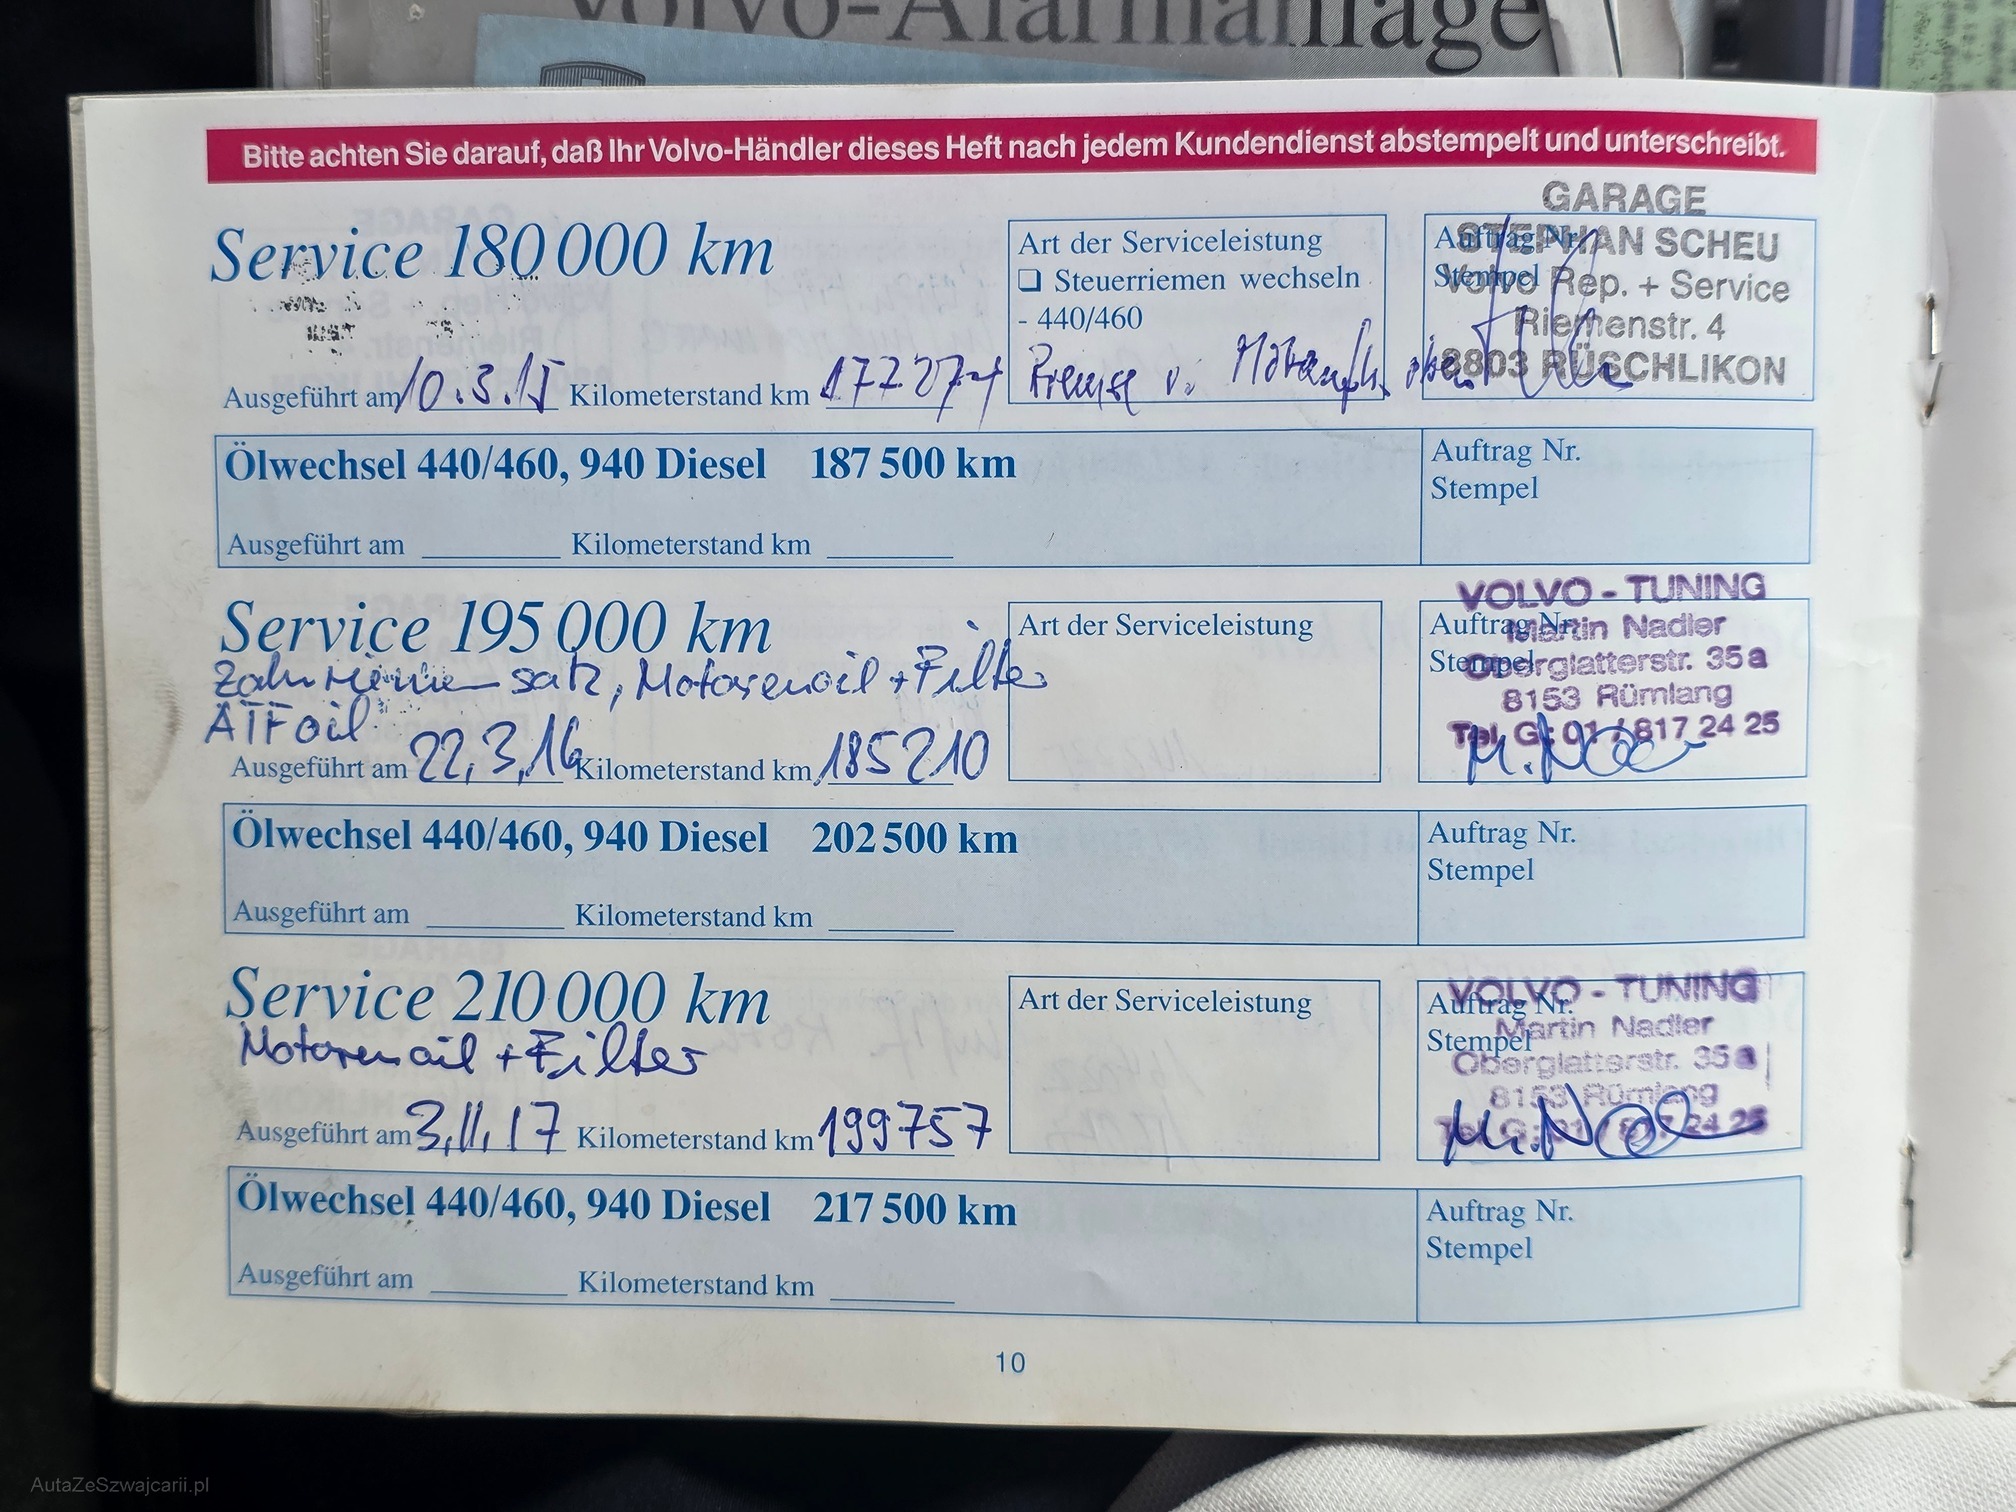 Volvo-Alarmanlage
Bitte achten Sie darauf, daß Ihr Volvo-Händler dieses Heft nach jedem Kundendienst abstempelt und unterschreibt.
Service 180 000 km
Art der Serviceleistung
❏ Steuerriemen wechseln
- 440/460
Auftrag Nr.
Stempel
GARAGE
STEPHAN SCHEU
Volvo Rep. + Service
Riemenstr. 4
8803 RÜSCHLIKON
Ausgeführt am 10.3.15 Kilometerstand km 177274
Ölwechsel 440/460, 940 Diesel 187 500 km
Auftrag Nr.
Stempel
Ausgeführt am Kilometerstand km
Service 195 000 km
Zahnriemensatz, Motorenoil + Filter
ATF oil
Art der Serviceleistung
Auftrag Nr.
Stempel
VOLVO - TUNING
Martin Nadler
Oberglatterstr. 35a
8153 Rümlang
Tel. G: 01 / 817 24 25
Ausgeführt am 22,3,16 Kilometerstand km 185210
Ölwechsel 440/460, 940 Diesel 202 500 km
Auftrag Nr.
Stempel
Ausgeführt am Kilometerstand km
Service 210 000 km
Motorenoil + Filter
Art der Serviceleistung
Auftrag Nr.
Stempel
VOLVO - TUNING
Martin Nadler
Oberglatterstr. 35a
8153 Rümlang
Tel. G: 01 / 817 24 25
Ausgeführt am 3,11,17 Kilometerstand km 199757
Ölwechsel 440/460, 940 Diesel 217 500 km
Auftrag Nr.
Stempel
Ausgeführt am Kilometerstand km
10
AutaZeSzwajcarii.pl